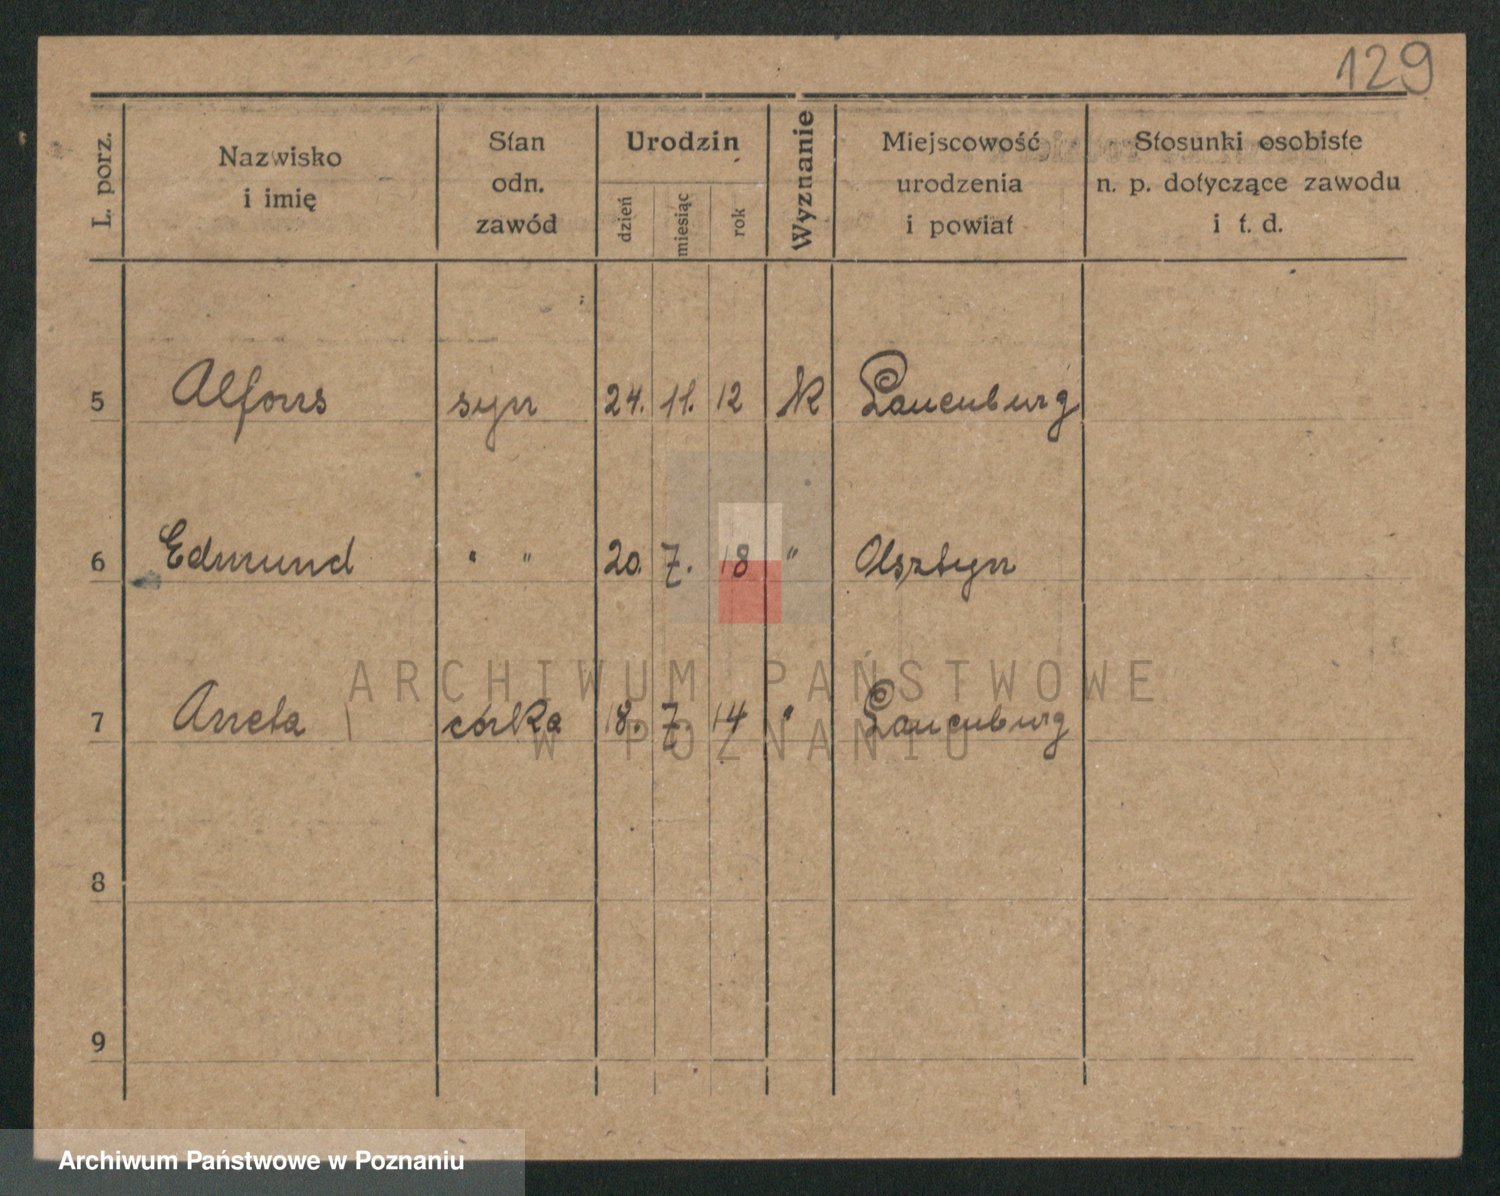 129
L. porz.
Nazwisko
i imię
Stan
odn.
zawód
Urodzin
dzień
miesiąc
rok
Wyznanie
Miejscowość
urodzenia
i powiat
Stosunki osobiste
n. p. dotyczące zawodu
i t. d.
5 Alfons syn 24. 11. 12 Lauenburg
6 Edmund " " 20. 7. 18 " Olsztyn
7 Aneta córka 18. 7. 14 " Lauenburg
8
9
ARCHIWUM PAŃSTWOWE
W POZNANIU
Archiwum Państwowe w Poznaniu